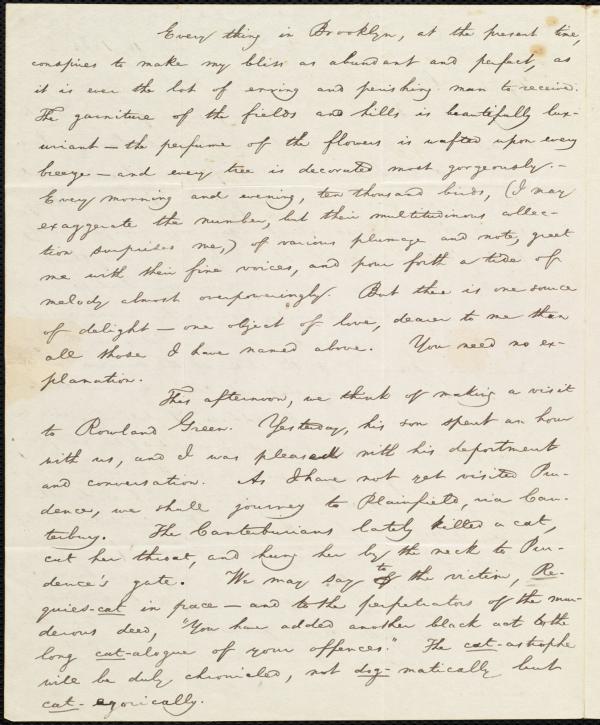 Every thing in Brooklyn, at the present time,
conspires to make my bliss as abundant and perfect, as
it is ever the lot of erring and perishing man to receive.
The garniture of the fields and hills is beautifully lux-
uriant — the perfume of the flowers is wafted upon every
breeze — and every tree is decorated most gorgeously. -
Every morning and evening, ten thousand birds, (I may
exaggerate the number, but their multitudinous collec-
tion surprises me,) of various plumage and note, greet
me with their fine voices, and pour forth a tide of
melody almost overpoweringly. But there is one source
of delight — one object of love, dearer to me than
all those I have named above. You need no ex-
planation.
This afternoon, we think of making a visit
to Rowland Green. Yesterday, his son spent an hour
with us, and I was pleased with his deportment
and conversation. As I have not yet visited Pru-
dence, we shall journey to Plainfield, via Can-
terbury. The Canterburians lately killed a cat,
cut her throat, and hung her by the neck to Pru-
dence's gate. We may say to the victim, Re-
quies-cat in pace — and to the perpetrators of the mur-
derous deed, "You have added another black act to the
long cat-alogue of your offences." The cat-astrophe
will be duly chronicled, not dog-matically but
cat-egorically.